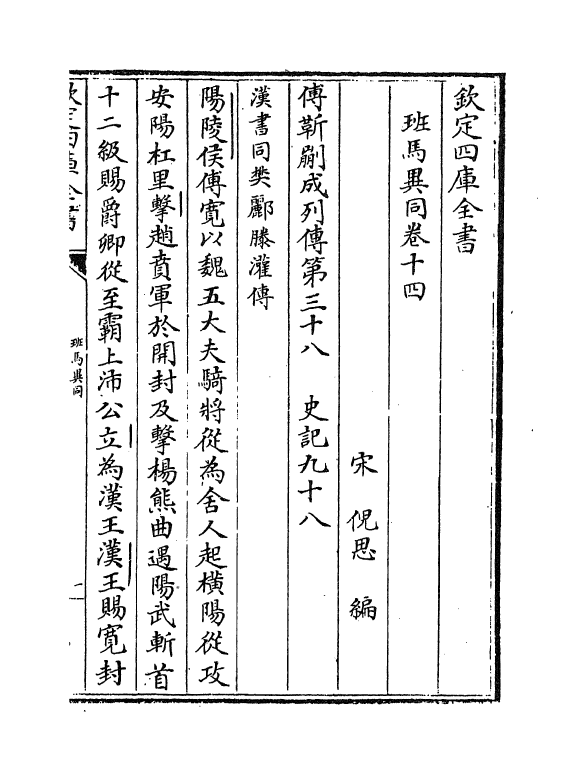 欽定四庫全書
班馬異同卷十四
宋 倪思 編
傅靳蒯成列傳第三十八 史記九十八
漢書同樊酈滕灌傳
陽陵侯傅寛以魏五大夫騎將從為舍人起橫陽從攻
安陽杠里擊趙賁軍於開封及擊楊熊曲遇陽武斬首
十二級賜爵卿從至霸上沛公立為漢王漢王賜寛封
欽定四庫全書
班馬異同
一